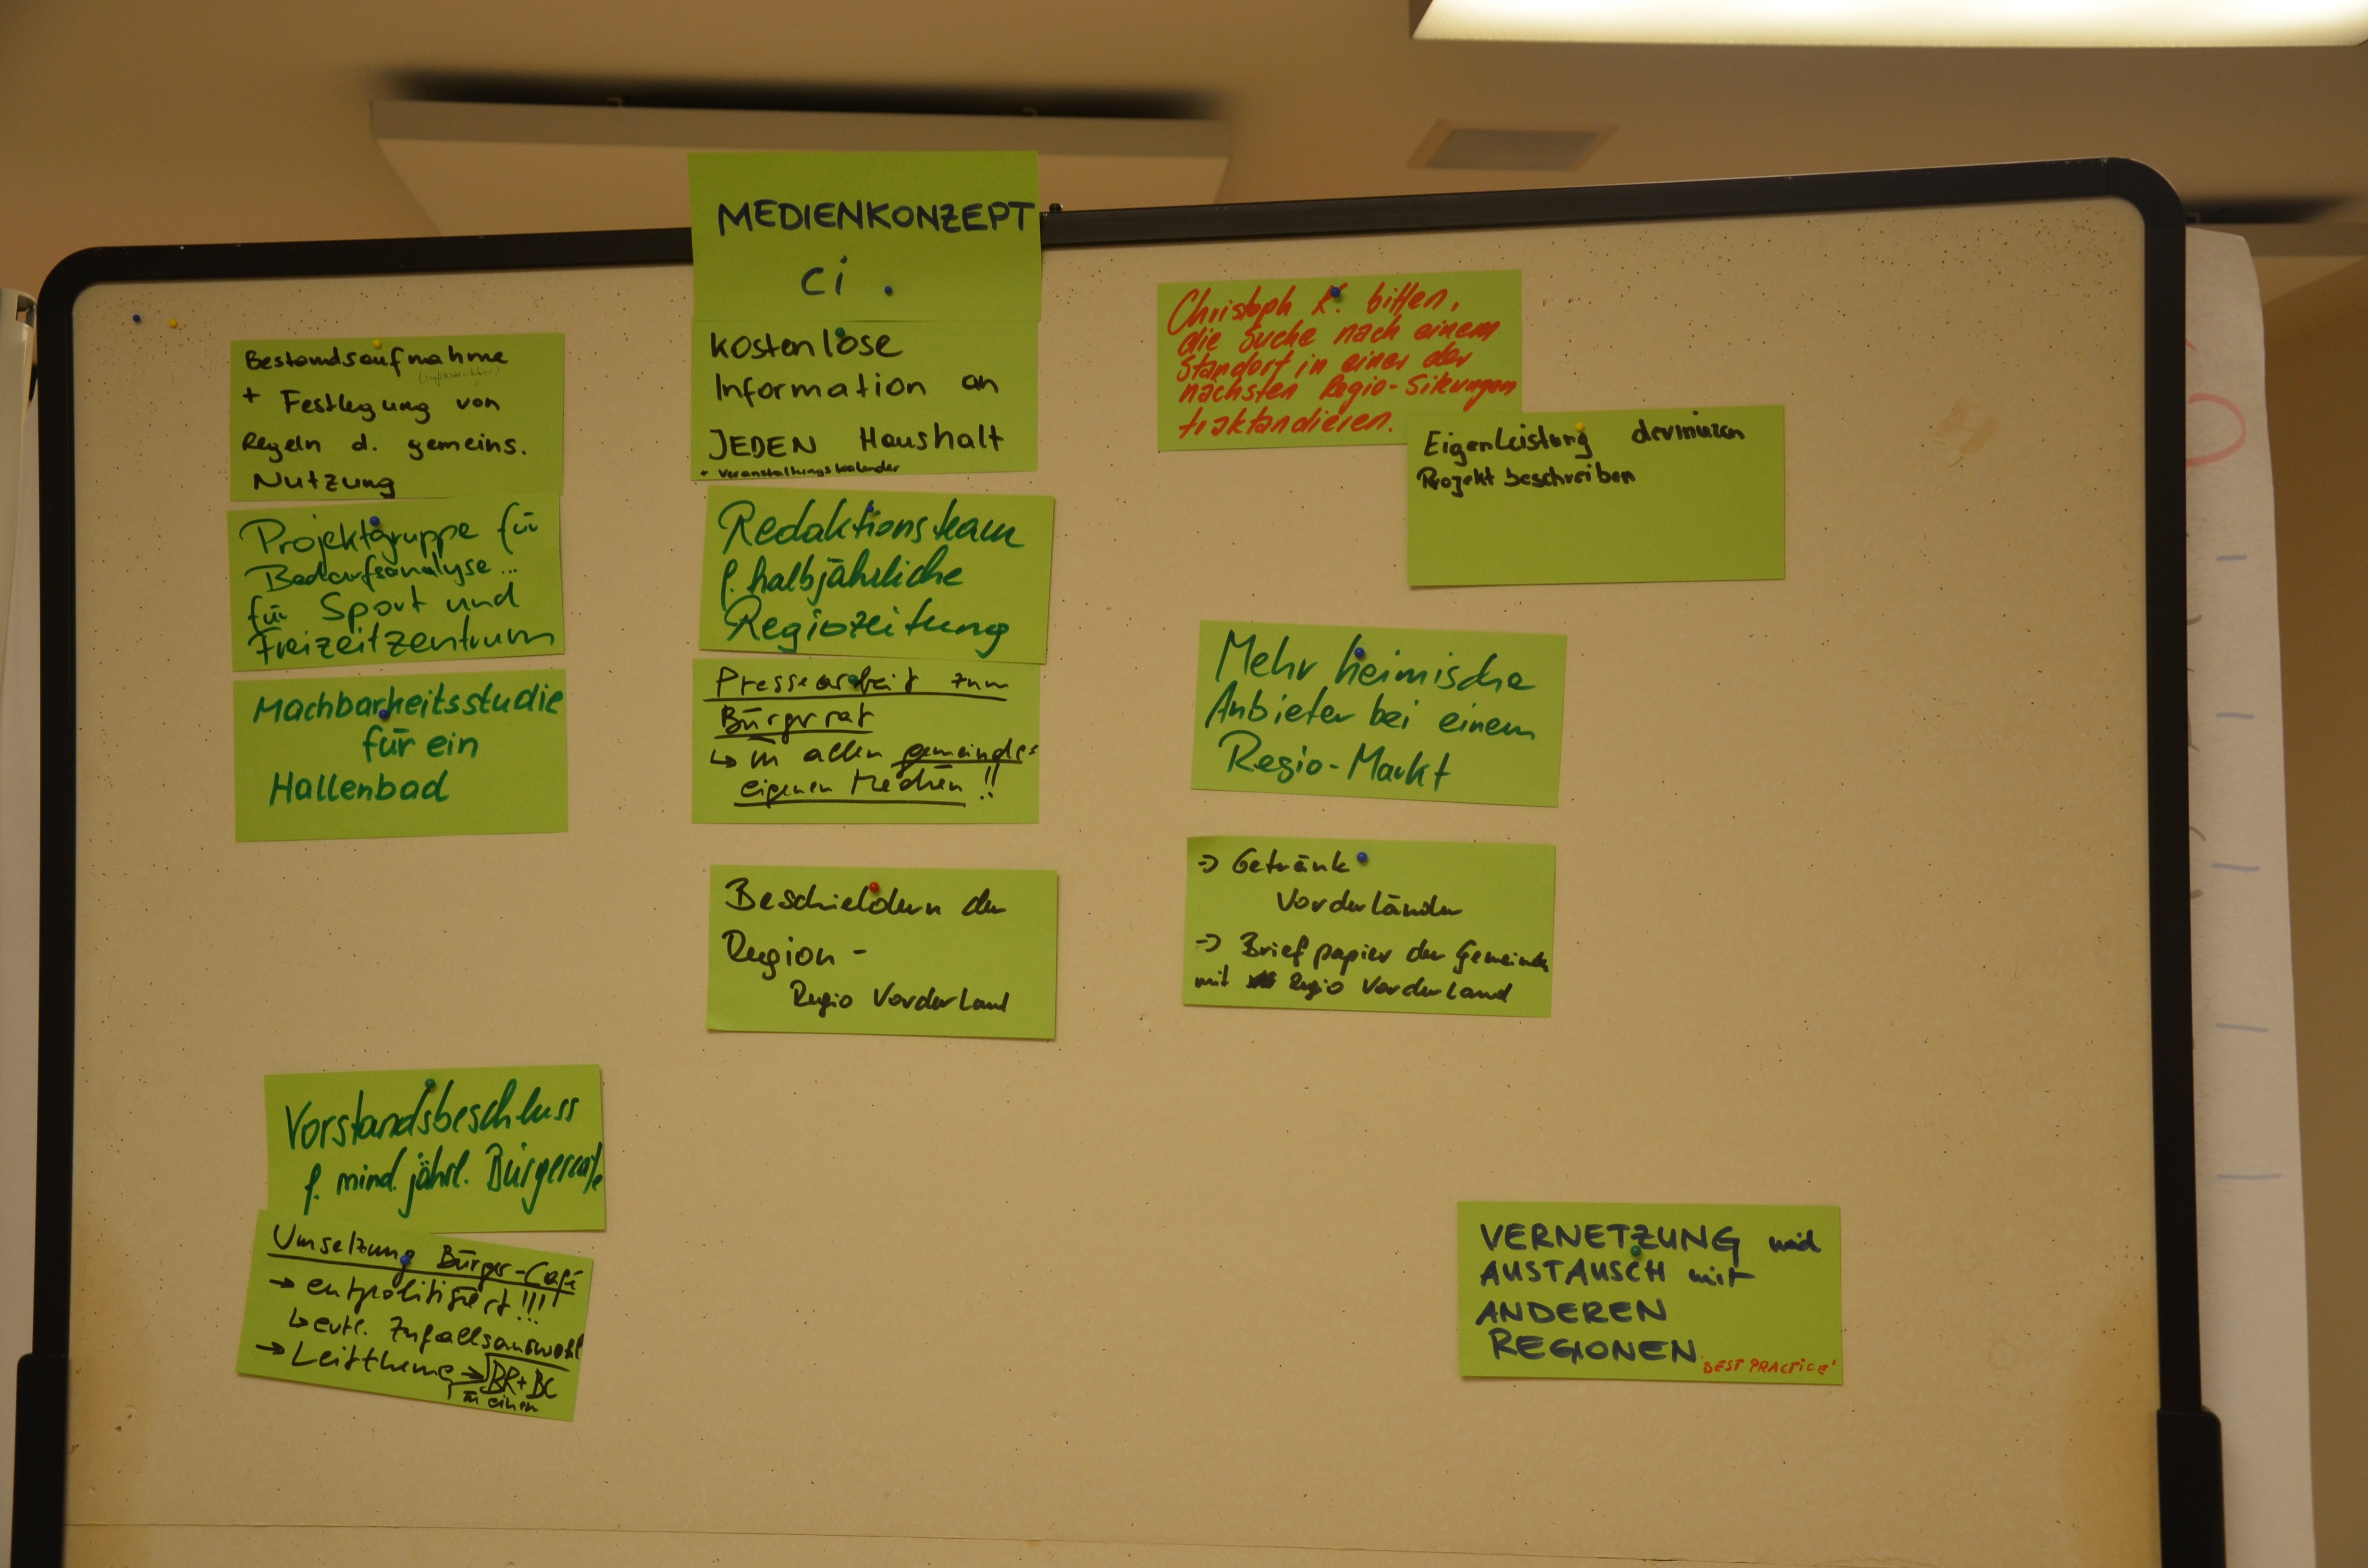 Bestandsaufnahme
(Infrastruktur)
+ Festlegung von
Regeln d. gemeins.
Nutzung
Projektgruppe für
Bedarfsanalyse...
für Sport und
Freizeitzentrum
Machbarkeitsstudie
für ein
Hallenbad
Vorstandsbeschluss
f. mind. jährl. Bürgercafe
Umsetzung Bürger-Café
→ entpolitisiert!!!
↳ evtl. Zufallsauswahl
→ Leitthema → BR+BC
in einem
MEDIENKONZEPT
Ci.
Kostenlose
Information an
JEDEN Haushalt
+ Veranstaltungskalender
Redaktionsteam
f. halbjährliche
Regiozeitung
Pressearbeit zum
Bürgerrat
↳ in allen gemeinde-
eigenen Medien!!
Beschieldern der
Region -
Regio Vorderland
Christoph K. bitten,
die Suche nach einem
Standort in einer der
nächsten Regio-Sitzungen
traktandieren.
Eigenleistung devinieren
Projekt beschreiben
Mehr heimische
Anbieter bei einem
Regio-Markt
→ Getränk
Vorderländer
→ Briefpapier der Gemeinde
mit Regio Vorderland
VERNETZUNG und
AUSTAUSCH mit
ANDEREN
REGIONEN
'BEST PRACTICE'